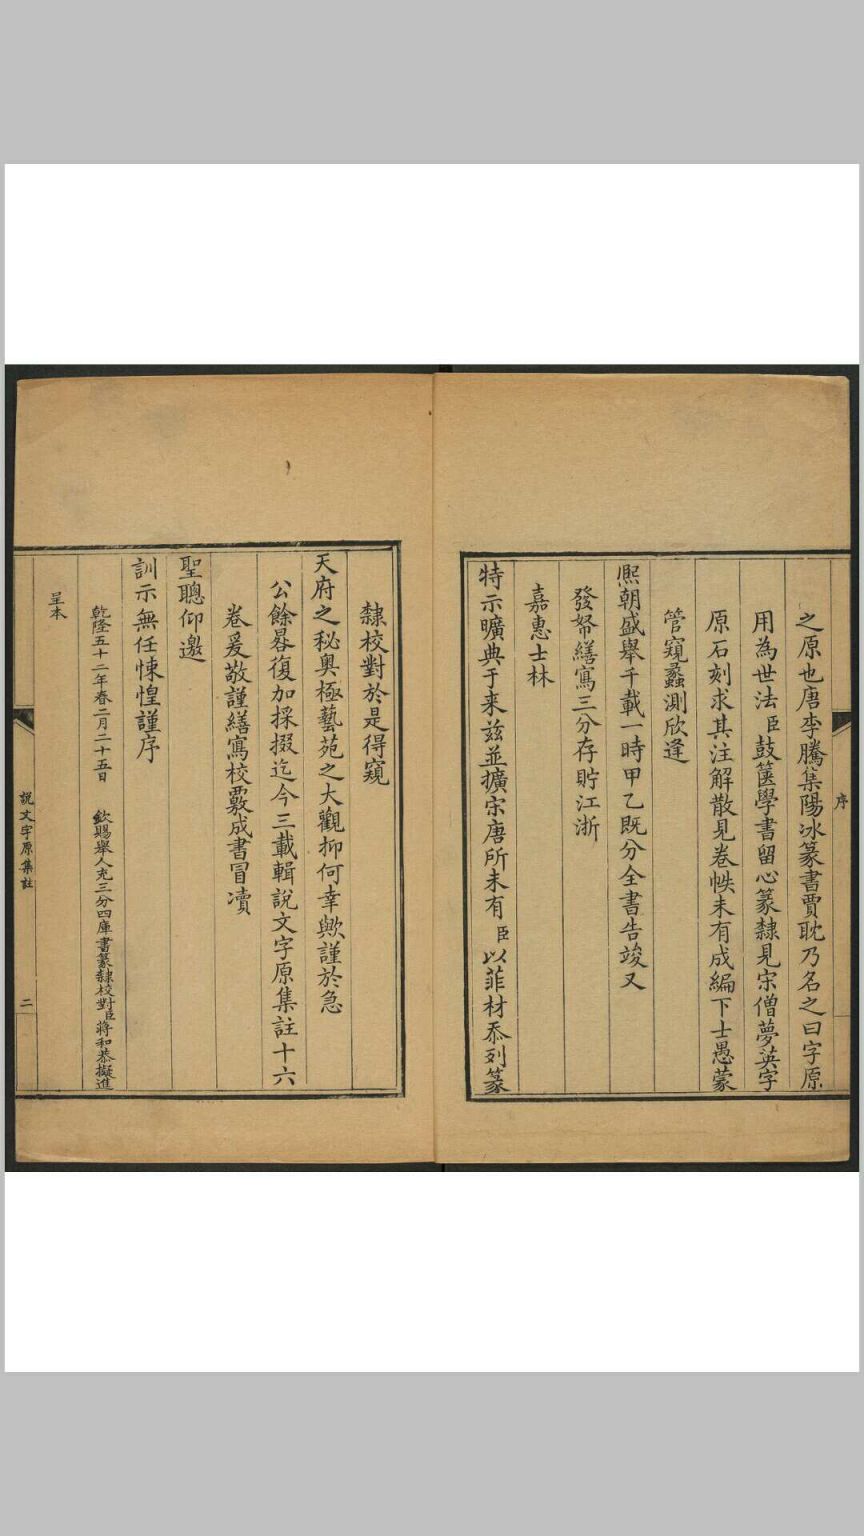 序
之原也唐李騰集陽冰篆書賈耽乃名之曰字原
用為世法臣鼓篋學書留心篆隸見宋僧夢英字
原石刻求其注解散見卷帙未有成編下士愚蒙
管窺蠡測欣逢
熈朝盛舉千載一時甲乙既分全書告竣又
發帑繕寫三分存貯江浙
嘉惠士林
特示曠典于來兹並擴宋唐所未有臣以菲材忝列篆
隸校對於是得窺
天府之秘奥極藝苑之大觀抑何幸歟謹於急
公餘晷復加採掇迄今三載輯說文字原集註十六
卷爰敬謹繕寫校覈成書冒瀆
聖聰仰邀
訓示無任悚惶謹序
乾隆五十二年春二月二十五日 欽賜舉人充三分四庫書篆隸校對臣蔣和恭擬進
呈本
說文字原集註 二